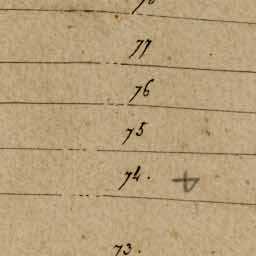 77
76
75
74.
4
73.